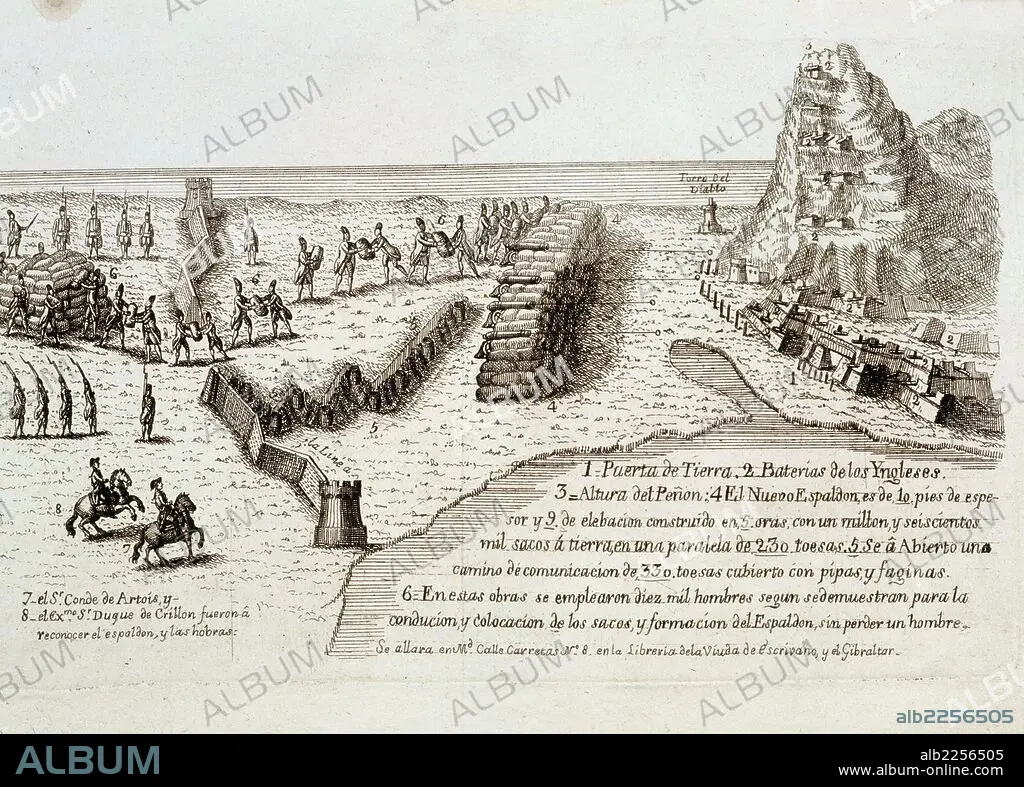 Torre Del
Diablo
La Linea
1=Puerta de Tierra. 2=Baterias de los Yngleses.
3=Altura del Peñon: 4 El Nuevo Espaldon, es de 10, pies de espe-
sor y 9. de elebacion construido en, 5. oras, con un millon, y seiscientos
mil sacos á tierra, en una paralela de 230. toesas. 5 Se â Abierto una
camino de comunicacion de 330, toesas cubierto con pipas, y faginas.
6=En estas obras se emplearon diez, mil hombres segun se demuestran para la
conducion, y colocacion de los sacos, y formacion del Espaldon, sin perder un hombre.
Se allara en Md. Calle Carretas No. 8. en la Libreria de la Viuda de Escrivano, y el Gibraltar.
7=el Sr. Conde de Artois, y-
8=el Exmo. Sr. Duque de Crillon fueron â
reconocer el espaldon, y las hobras:
ALBUM
alb2256505
ALBUM
alb2256505
www.album-online.com